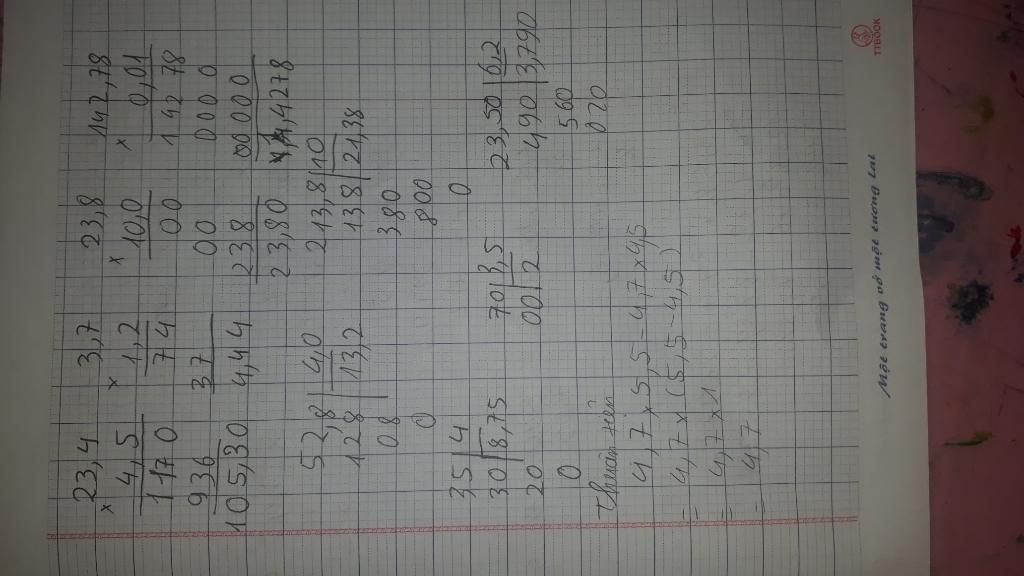 × 23,4   × 3,7   × 23,8   × 142,78
4,5   1,2   10,0   0,01
1170   74   00   142 78
936   37   00   000 0
105,30   4,44   238   00000
23,80   1,4278
52,8 4,0   213,8 10
128 13,2   138 21,38
08   380
0   800
0
35 4   70 3,5   23,50 6,2
30 8,75   00 2   490 3,790
20   560
0   020
4,7 × 5,5 - 4,7 × 4,5
= 4,7 × (5,5 - 4,5)
= 4,7 × 1
= 4,7
TIBOOK
Một trang vở một tương lai